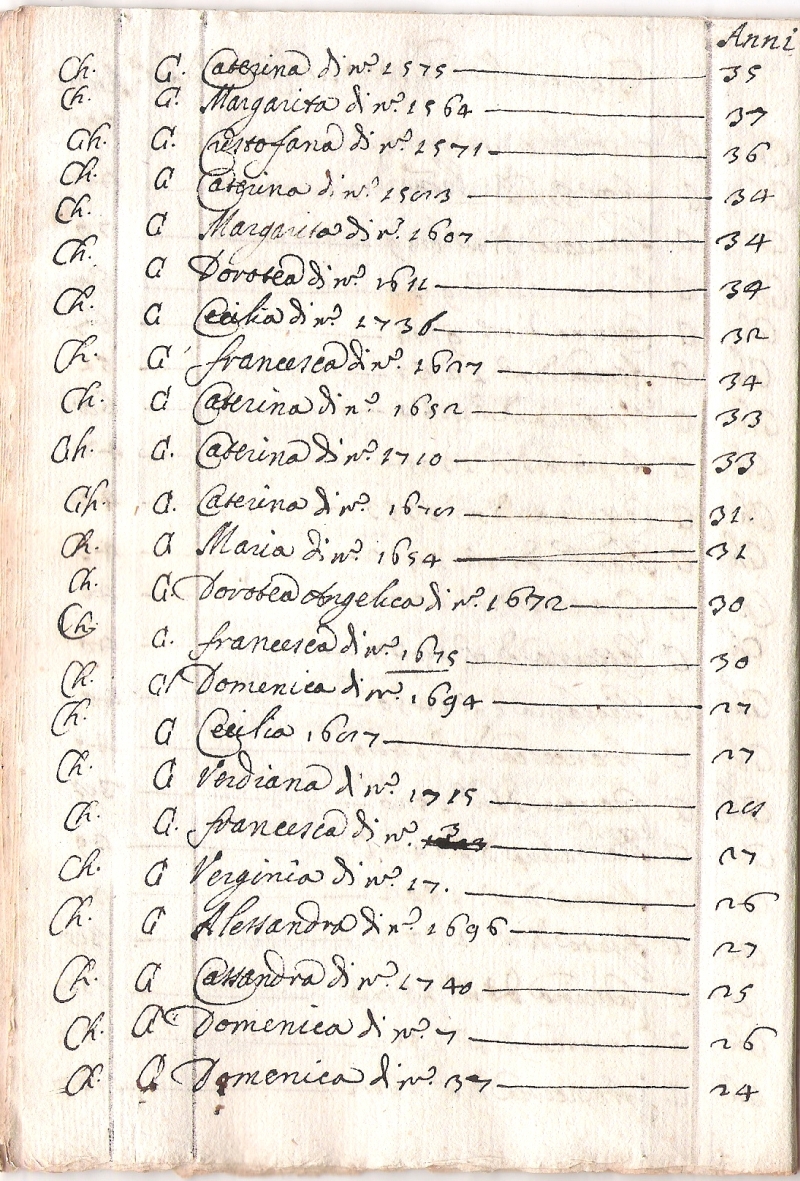 Anni
Ch. G. Caterina di nº. 1575 35
Ch. G. Margarita di nº. 1564 37
Ch. G. Cristofana di nº. 1571 36
Ch. G Caterina di nº 34
Ch. G Margarita di nº. 1607 34
Ch. G Dorotea di nº. 1611 34
Ch. G Cecilia di nº. 1736 32
Ch. G francesca di nº. 34
Ch. G Caterina di nº. 1652 33
Ch. G. Caterina di nº. 1710 33
Ch. G. Caterina di nº. 31.
Ch. G Maria di nº. 1654 31
Ch. G. Dorotea Angelica di nº. 1672 30
Ch. G. francesca di nº. 1675 30
Ch. G Domenica di nº. 1694 27
Ch. G Cecilia 27
Ch. G Verdiana di nº. 1715
Ch. G. francesca di nº. 3 27
Ch. G Verginia di nº. 17. 26
Ch. G Alessandra di nº. 1696 27
Ch. G Cassandra di nº. 1740 25
Ch. G Domenica di nº. 7 26
Ch. G Domenica di nº. 37 24